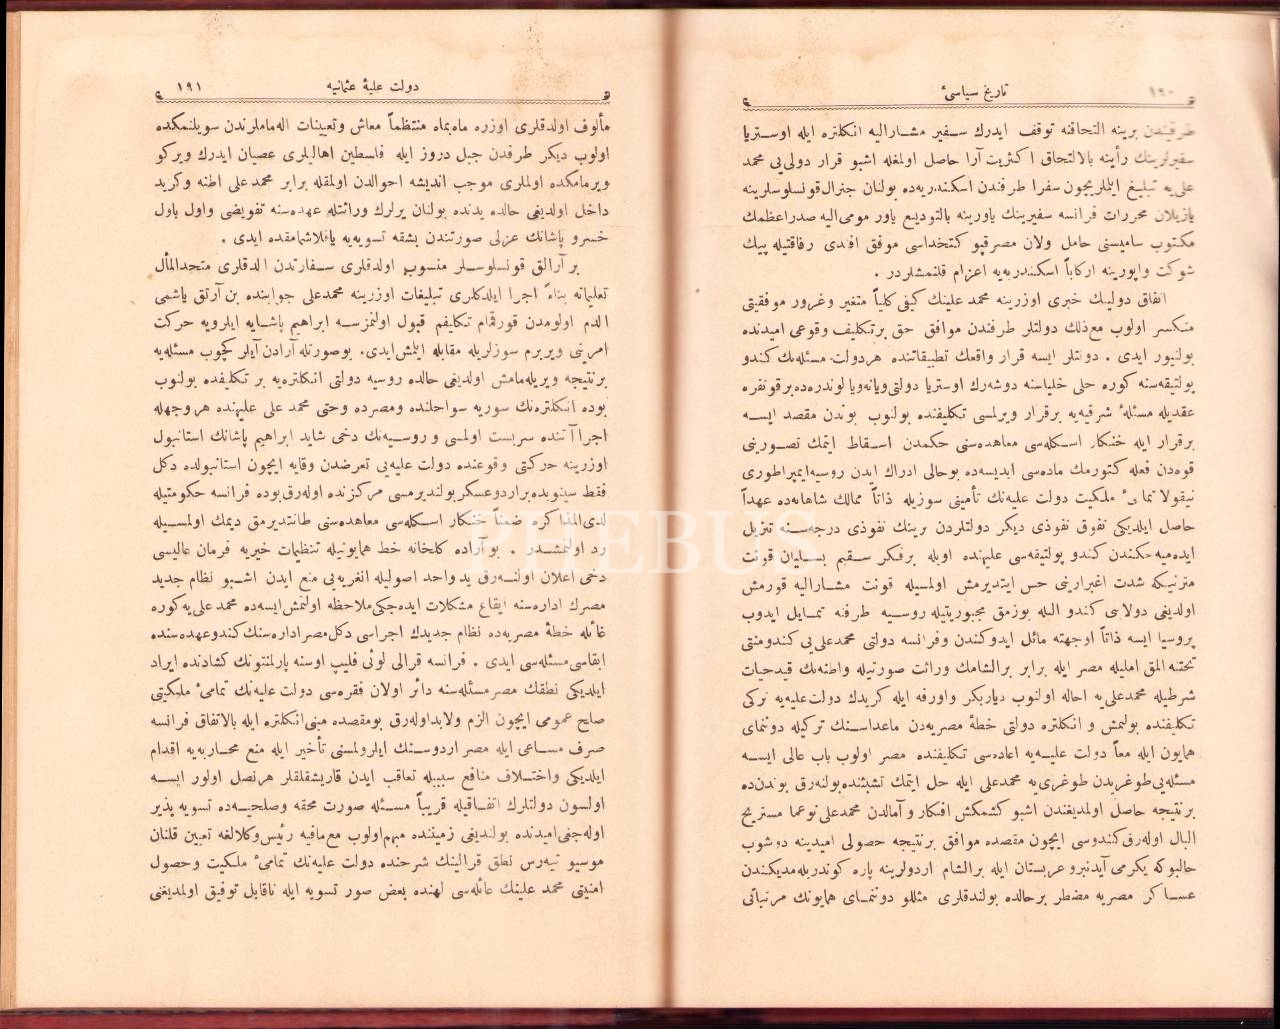 ١٩٠ تاريخ سياسئ
طرفيندن برينه التحاقنه توقف ايدرك سفير مشاراليه انكلتره ايله اوستريا
سفيرلرينك رأينه بالالتحاق اكثريت آرا حاصل اولمغله اشبو قرار دولى‌يى محمد
على‌يه تبليغ ايتملريچون سفرا طرفندن اسكندريه‌ده بولنان جنرال‌قونسلوسلرينه
يازيلان محررات فرانسه سفيرينك ياورينه بالتوديع ياور مومى‌اليه صدراعظمك
مكتوب ساميسنى حامل ولان مصرقپو كتخداسى موفق افندى رفاقتيله پيك
شوكت واپورينه اركاباً اسكندريه‌يه اعزام قلنمشلردر .
اتفاق دوليك خبرى اوزرينه محمد علينك كيفى كلياً متغير وغرور موفقيتى
منكسر اولوب مع‌ذلك دولتلر طرفندن موافق حق برتكليف وقوعى اميدنده
بولنيور ايدى . دولتلر ايسه قرار واقعك تطبيقاتنده هردولت مسئله‌نك كندو
پولتيقه‌سنه كوره حلى خلياسنه دوشه‌رك اوستريا دولتى ويانه ويا لوندره‌ده برقونفره
عقديله مسئلهٔ شرقيه‌يه برقرار ويرلمسى تكليفنده بولنوب بوندن مقصد ايسه
برقرار ايله خنكار اسكله‌سى معاهده‌سنى حكمدن اسقاط ايتمك تصورينى
قوه‌دن فعله كتورمك ماده‌سى ايديسه‌ده بوحالى ادراك ايدن روسيه‌ايمپراطورى
نيقولا تمامئ ملكيت دولت عليه‌نك تأمينى سوزيله ذاتاً ممالك شاهانه‌ده عهداً
حاصل ايلديكى تفوق نفوذى ديكر دولتلردن برينك نفوذى درجه‌سنه تنزيل
ايده‌ميه‌جكندن كندو پولتيقه‌سى عليهنده اويله برفكر سقيم بسليان قونت
مترنيكه شدت اغبرارينى حس ايتديرمش اولمسيله قونت مشاراليه قورمش
اولديغى دولابى كندو اليله بوزمق مجبوريتيله روسيه طرفنه تمايل ايدوب
پروسيا ايسه ذاتاً اوجهته مائل ايدوكندن وفرانسه دولتى محمدعلى‌يى كندومنتى
تحتنه المق امليله مصر ايله برابر برالشامك وراثت صورتيله واطنه‌نك قيدحيات
شرطيله محمدعلى‌يه احاله اولنوب دياربكر واورفه ايله كريدك دولت‌عليه‌يه تركى
تكليفنده بولنمش و انكلتره دولتى خطهٔ مصريه‌دن ماعداسنك تركيله دوننماى
همايون ايله معاً دولت عليه‌يه اعاده‌سى تكليفنده مصر اولوب باب عالى ايسه
مسئله‌يى طوغريدن طوغرى‌يه محمدعلى ايله حل ايتمك تشبثنده بولنه‌رق بوندن‌ده
برنتيجه حاصل اولمديغندن اشبو كشمكش افكار وآمالدن محمدعلى نوعما مستريح
البال اوله‌رق كندوسى ايچون مقصده موافق برنتيجه حصولى اميدينه دوشوب
حالبوكه يكرمى آيدنبرو عربستان ايله برالشام اردولرينه پاره كوندريله‌مديكندن
عساكر مصريه مضطر برحالده بولندقلرى مثللو دوننماى همايونك مرتباتى
دولت عليهٔ عثمانيه ١٩١
مألوف اولدقلرى اوزره ماه‌بماه منتظماً معاش وتعيينات اله‌ماملرندن سويلنمكده
اولوب ديكر طرفدن جبل دروز ايله فلسطين اهاليلرى عصيان ايدرك ويركو
ويرمامكده اولملرى موجب انديشه احوالدن اولمقله برابر محمدعلى اطنه وكريد
داخل اولديغى حالده يدنده بولنان يرلرك وراثتله عهده‌سنه تفويضى واول باول
خسرو پاشانك عزلى صورتندن بشقه تسويه‌يه ياقلاشمامقده ايدى .
بر آرالق قونسلوسلر منسوب اولدقلرى سفارتدن الدقلرى متحدالمأل
تعليماته بناءً اجرا ايلدكلرى تبليغات اوزرينه محمدعلى جوابنده بن آرتق ياشمى
الدم اولومدن قورقمام تكليفم قبول اولنمزسه ابراهيم پاشايه ايلرويه حركت
امرينى ويررم سوزلريله مقابله ايتمش‌ايدى. بوصورتله آرادن آيلر كچوب مسئله‌يه
برنتيجه ويريله‌مامش اولديغى حالده روسيه دولتى انكلتره‌يه بر تكليفده بولنوب
بوده انكلتره‌نك سوريه سواحلنده ومصرده وحتى محمد على عليهنده هروجهله
اجراآتنده سربست اولمسى و روسيه‌نك دخى شايد ابراهيم پاشانك استانبول
اوزرينه حركتى وقوعنده دولت عليه‌يى تعرضدن وقايه ايچون استانبولده دكل
فقط سينوبده براردوعسكر بولنديرمسى مركزنده اوله‌رق‌بوده فرانسه حكومتيله
لدى‌المذاكره ضمناً خنكار اسكله‌سى معاهده‌سنى طانتديرمق ديمك اولمسيله
رد اولنمشدر . بوآراده كلخانه خط همايونيله تنظيمات خيريه فرمان عاليسى
دخى اعلان اولنه‌رق يدواحد اصوليله انغريه‌يى منع ايدن اشبو نظام جديد
مصرك اداره‌سنه ايقاع مشكلات ايده‌جكى‌ملاحظه اولنمش‌ايسه‌ده محمدعلى‌يه‌كوره
غائله خطهٔ مصريه‌ده نظام جديدك اجراسى دكل‌مصر اداره‌سنك كندوعهده‌سنده
ابقاسى مسئله‌سى ايدى . فرانسه قرالى لوئى فليپ اوسنه پارلمنتونك كشادنده ايراد
ايلديكى نطقك مصرمسئله‌سنه دائر اولان فقره‌سى دولت عليه‌نك تمامئ ملكيتى
صلح عمومى ايچون الزم ولابداوله‌رق بومقصده مبنى‌انكلتره ايله بالاتفاق فرانسه
صرف مساعى ايله مصر اردوسنك ايلرولمسنى تأخير ايله منع محاربه‌يه اقدام
ايلديكى واختلاف منافع سببيله تعاقب ايدن قاريشقلقلر هرنصل اولور ايسه
اولسون دولتلرك اتفاقيله قريباً مسئله صورت محقه وصلحيه‌ده تسويه پذير
اوله‌جغى‌اميدنده بولنديغى زمينده مبهم‌اولوب مع‌مافيه رئيس‌وكلالغه تعيين قلنان
موسيو تيه‌رس نطق قرالينك شرحنده دولت عليه‌نك تمامئ ملكيت وحصول
امنيتى محمد علينك عائله‌سى لهنده بعض صور تسويه ايله ناقابل توفيق اولمديغنى
PHEBUS